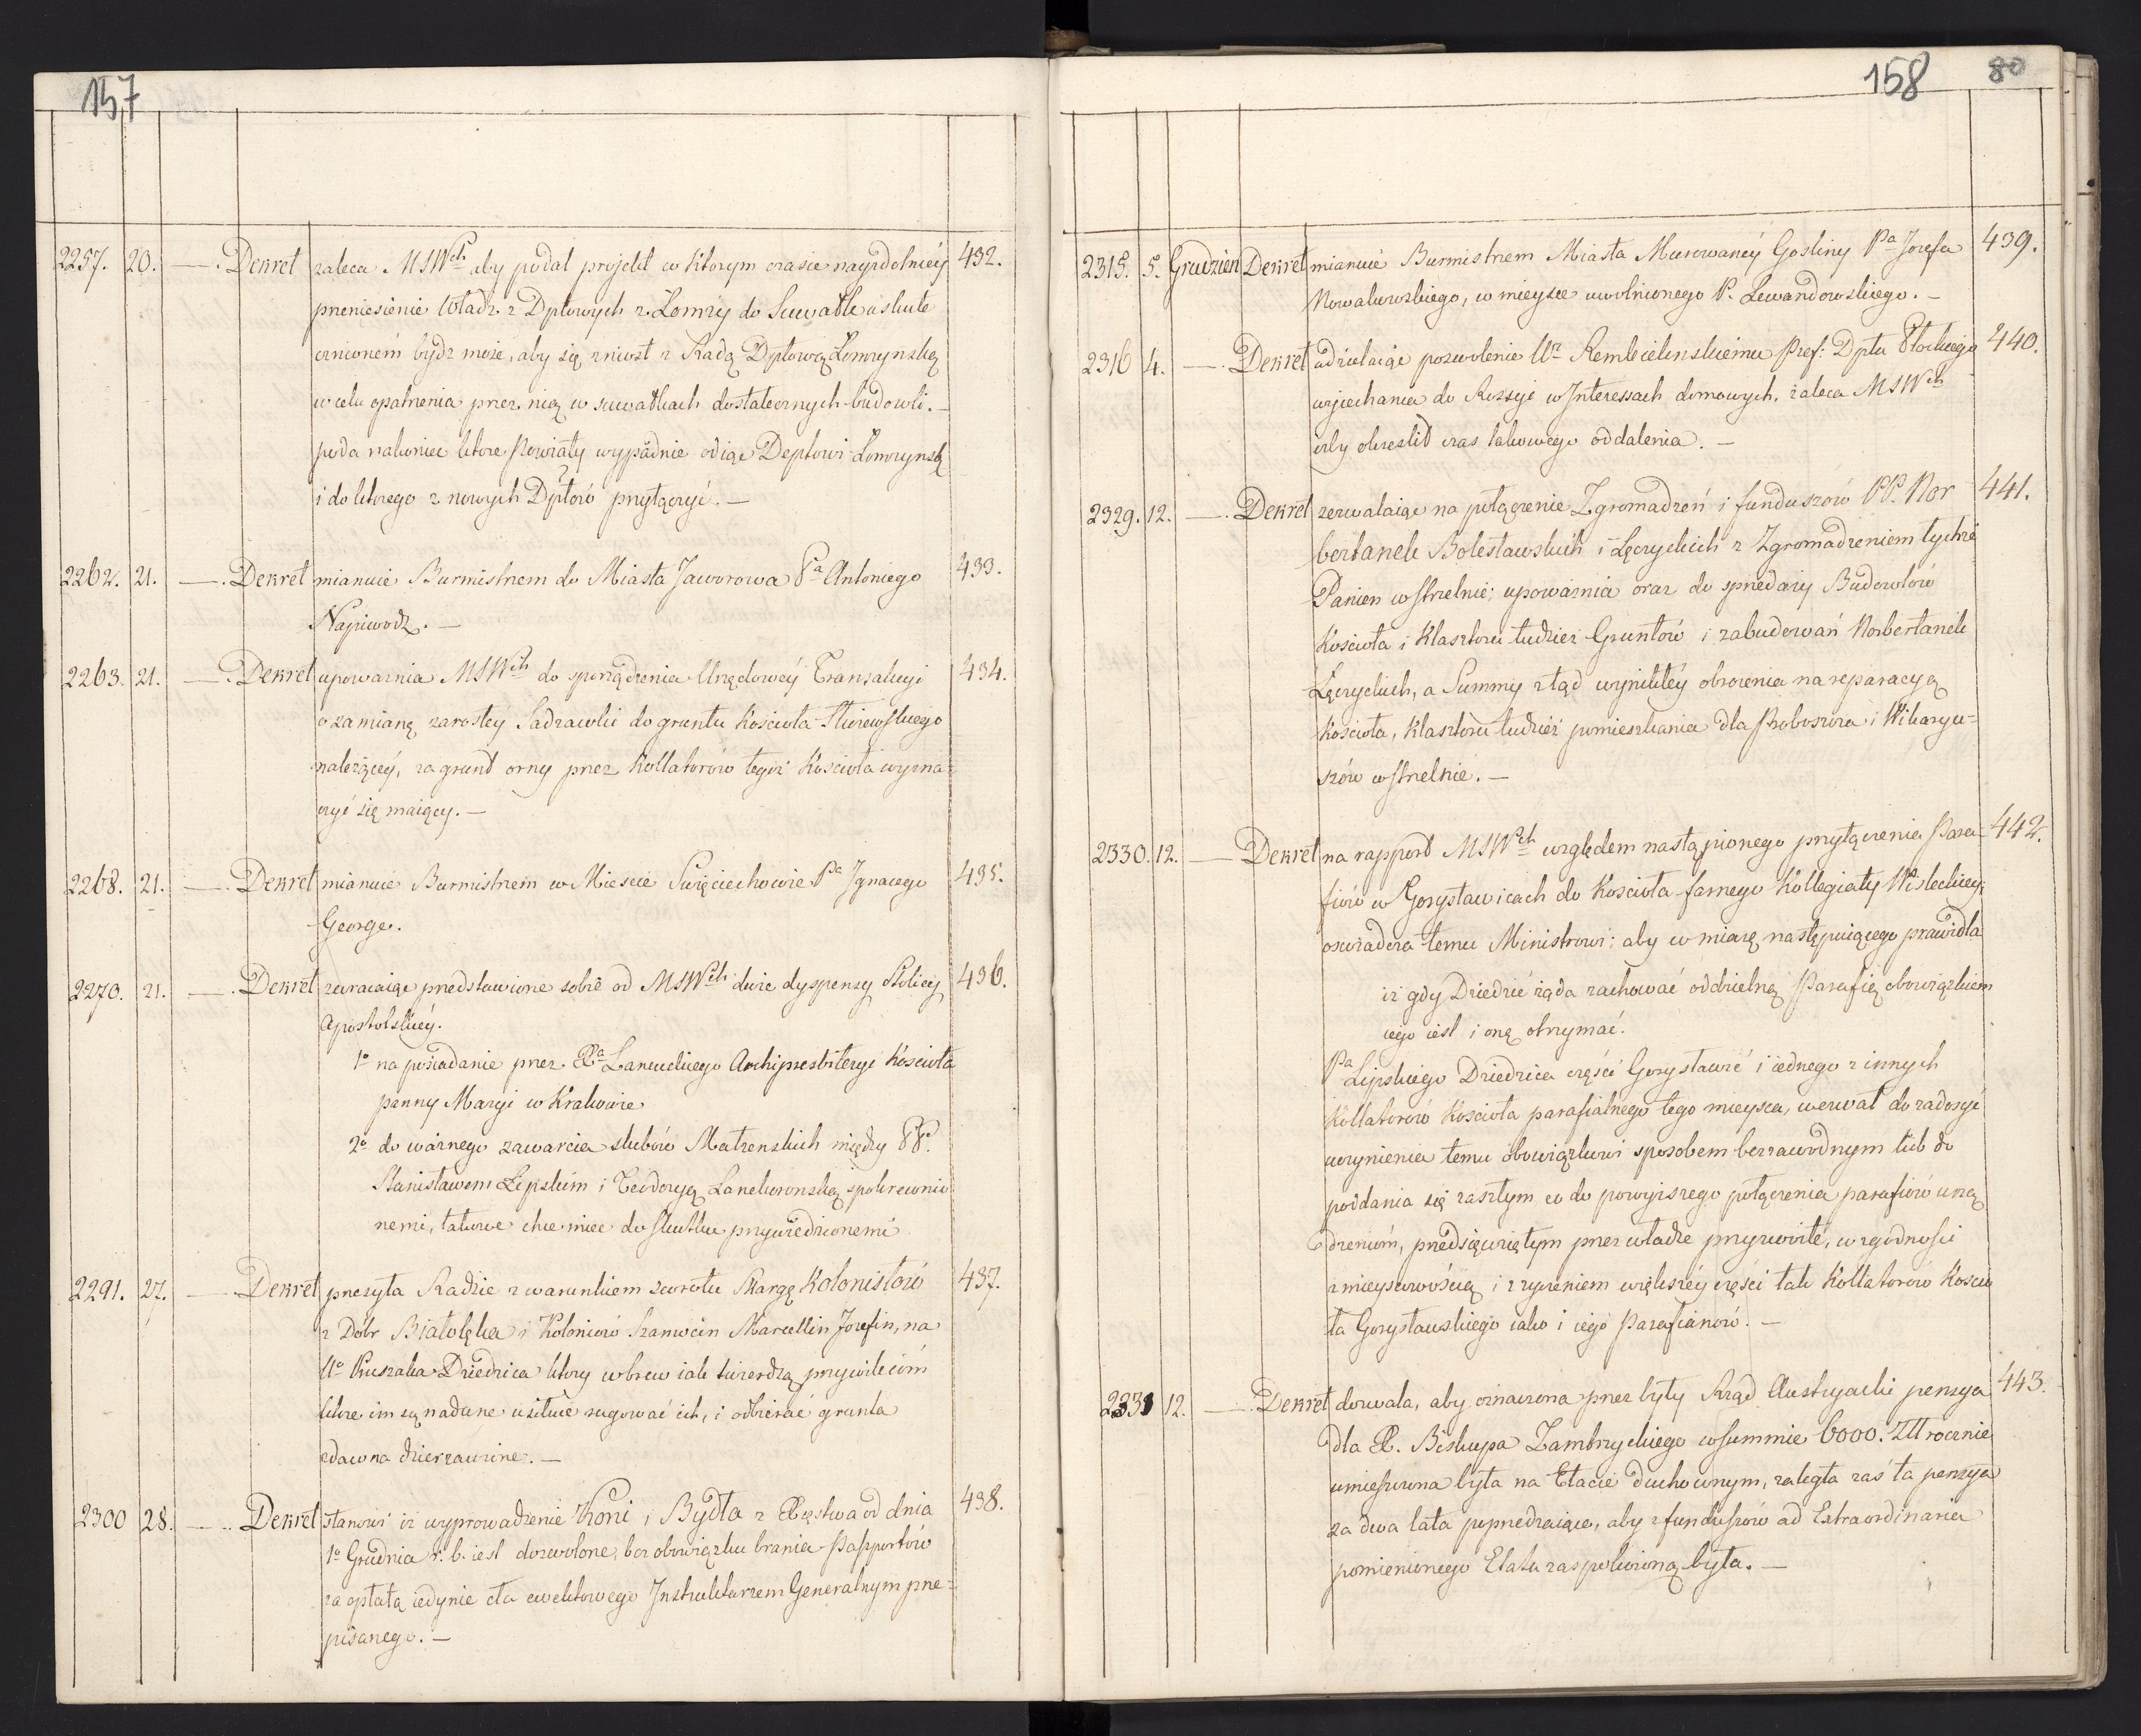 157
2257. 20. —. Dekret zaleca MSWch aby podał projekt w którym czasie nayzdolniéy 432.
przeniesienie Władz z Dptowych z Łomży do Suwałk uskute
cznioném bydź może, aby się zniosł z Radą Dptową Łomżynską
w celu opatrzenia przez nią w suwałkach dostatecznych budowli. —
poda nakoniec które Powiaty wypadnie odiąć Deptowi Łomżynsk
i do którego z nowych Dptów przyłączyć. —
2262. 21. —. Dekret mianuie Burmistrzem do Miasta Jaworowa Pa Antoniego 433.
Napiwodz. —
2263. 21. —. Dekret upoważnia MSWch do sporządzenia Urzędowéy Tranzakcyi 434.
o zamianę zarosłéy Sadzawki do gruntu Kościoła
należącéy, za grunt orny przez Kollatorów tegoż Kościoła wyzna-
czyć się maiący. —
2268. 21. —. Dekret mianuie Burmistrzem w Miescie Swięciechowie Pa Ignacego 435.
George.
2270. 21. —. Dekret zwracaiąc przedstawione sobie od MSWch dwie dyspensy Stolicy 436.
Apostolskiéy.
1o na posiadanie przez Xa Lancuckiego Archipresbiteryi Kościoła
panny Maryi w Krakowie
2o do ważnego zawarcia slubów Małżenskich między PP.
Stanisławem Lipskim i Teodoryą Lanckoronską spokrewnio
nemi, takowe chce miec do skutku przywiedzionemi
2291. 27. —. Dekret przesyła Radzie z warunkiem zwrotu Skargę Kolonistów 437.
z Dóbr Białołęka i Koloniów Szamocin Marcellin Jozefin, na
Uo Ruszaka Dziedzica który wbrew iak twierdzą przywileióm
które im są nadane usiłuie rugować ich, i odbierać grunta
zdawna dzierzawione. —
2300 28. —. Dekret stanowi iż wyprowadzenie Koni i Bydła z Xięstwa od dnia 438.
1o Grudnia r. b. iest dozwolone, bez obowiązku brania Paszportów
za opłatą iedynie cła ewektowego Instruktarzem Generalnym prze-
pisanego. —
158 80
2315. 5. Grudzien Dekret mianuie Burmistrzem Miasta Murowanéy Gosliny Pa Jozefa 439.
Nowakowskiego, w mieysce uwolnionego P. Lewandowskiego. —
2316 4. —. Dekret udzielaiąc pozwolenie Ur Rembielinskiemu Pref: Dptu Płockiego 440.
wyiechania do Rossyi w Interessach domowych, zaleca MSWch
iżby okreslił czas takowego oddalenia. —
2329. 12. —. Dekret zezwalaiąc na połączenie Zgromadzeń i funduszów PP. Nor 441.
bertanek Bolesławskich i Łęczyckich z Zgromadzeniem tychże
Panien w Strzelnie; upoważnia oraz do sprzedaży Budowlów
Kościoła i Klasztoru tudzież Gruntów i zabudowań Norbertanek
Łęczyckich, a Summy ztąd wynikłéy obrócenia na reparacyą
Kościoła, Klasztoru tudzież pomieszkania dla Proboszcza i Wikaryu-
szów w Strzelnie. —
2330. 12. —. Dekret na rapport MSWch względem nastąpionego przyłączenia Para- 442.
fiów w Gorysławicach do Kościoła farnego Kollegiaty Wisleckiey;
oswiadcza temu Ministrowi; aby w miarę następuiącego prawidła
iż gdy Dziedzic żąda zachować oddzielną Parafią obowiązkiem
iego iest i onę otrzymać.
Pa Lipskiego Dziedzica części Gorysławic i iednego z innych
Kollatorów Kościoła parafialnego tego mieysca, wezwał do zadosyć
uczynienia temu obowiązkowi sposobem bezzawodnym lub do
poddania się zaszłym co do powyższego połączenia parafiów urzą
dzenióm, przedsięwziętym przez władze przyzwoite, w zgodności
z mieyscowością i z życzeniem większéy części tak Kollatorów Koscio
ła Gorysławskiego iako i iego Parafianów. —
2331 12. —. Dekret dozwala, aby oznaczona przez były Rząd Austryacki pensya 443.
dla X. Biskupa Zambrzyckiego w summie 6000. Złł rocznie
umieszczona była na Etacie duchownym, zaległa zaś ta pensya
za dwa lata poprzedzaiące, aby z funduszów ad Extraordinaria
pomienionego Etatu zaspokoioną była. —